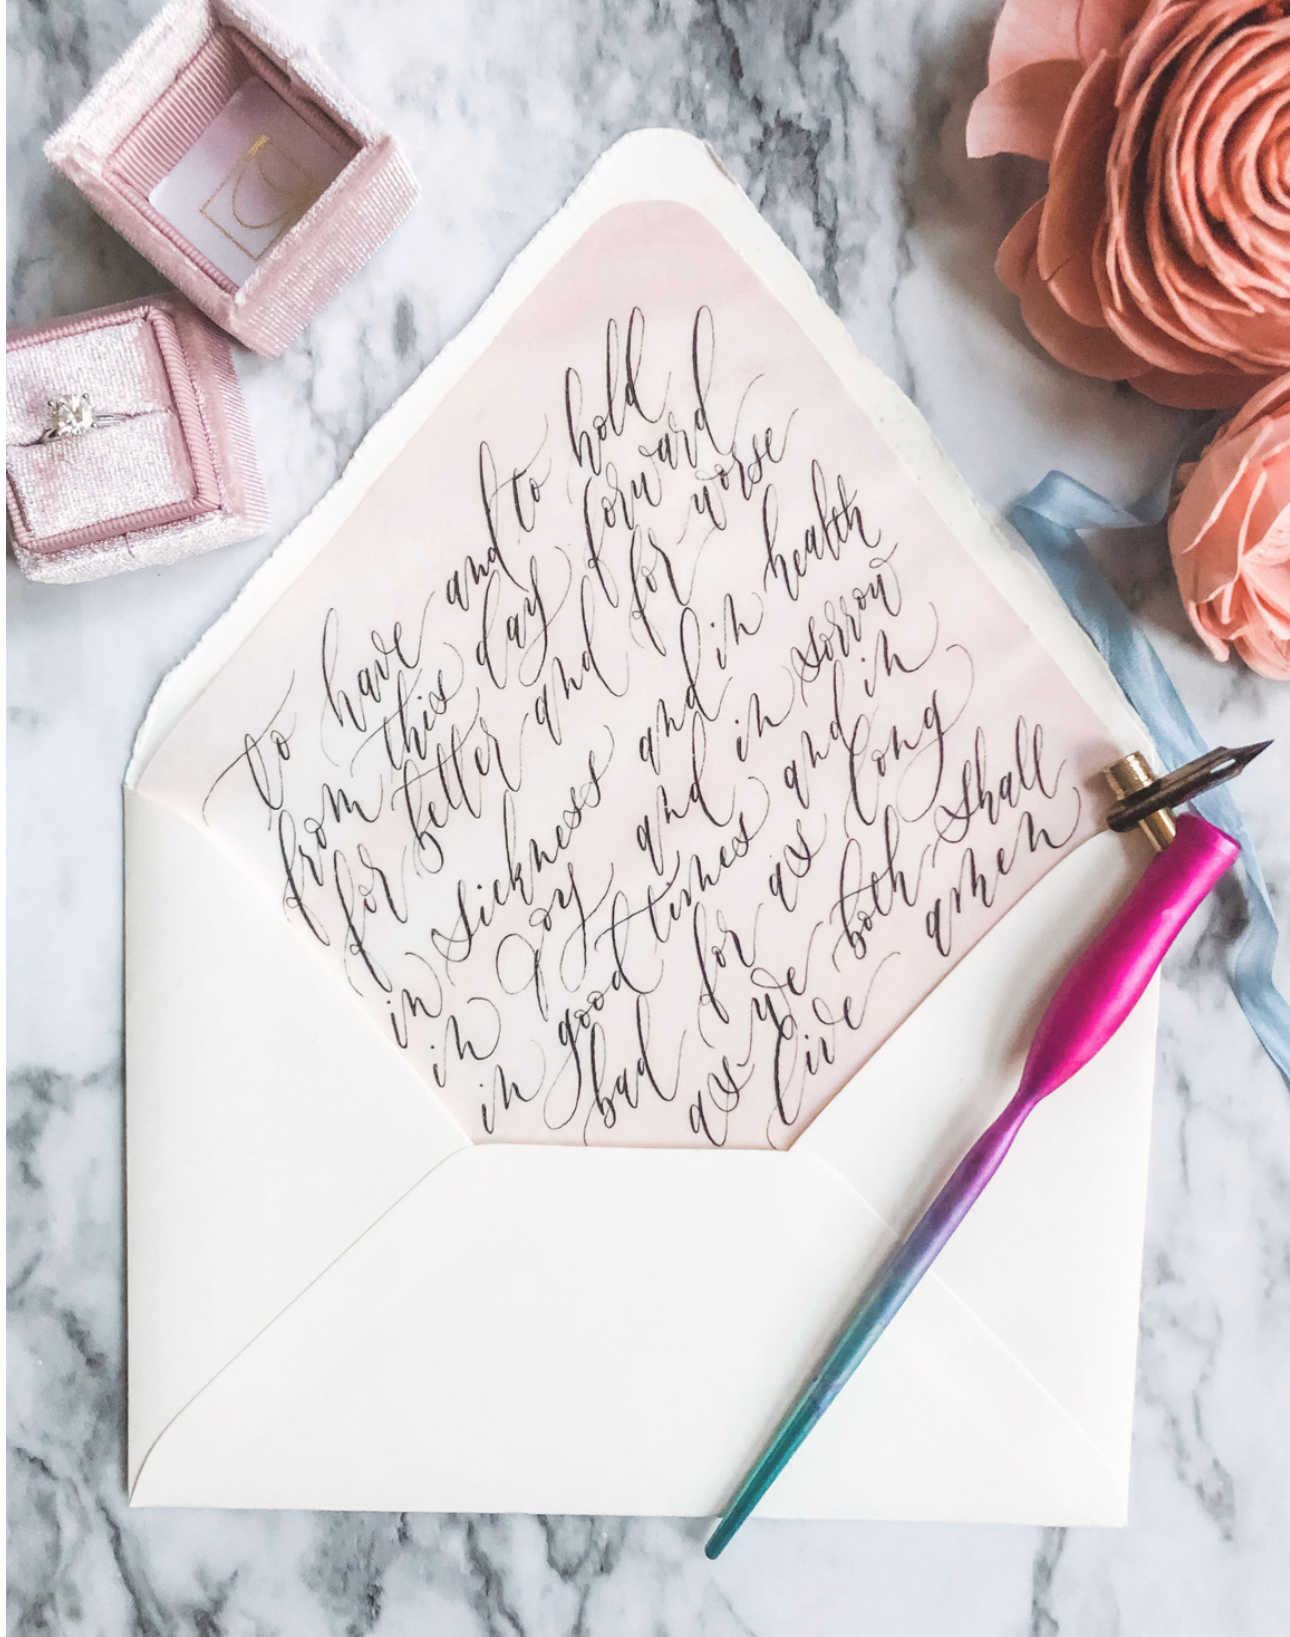 to have and to hold
from this day forward
for better and for worse
in sickness and in health
in joy and in sorrow
in good times and in
bad for as long
as we both shall
live amen